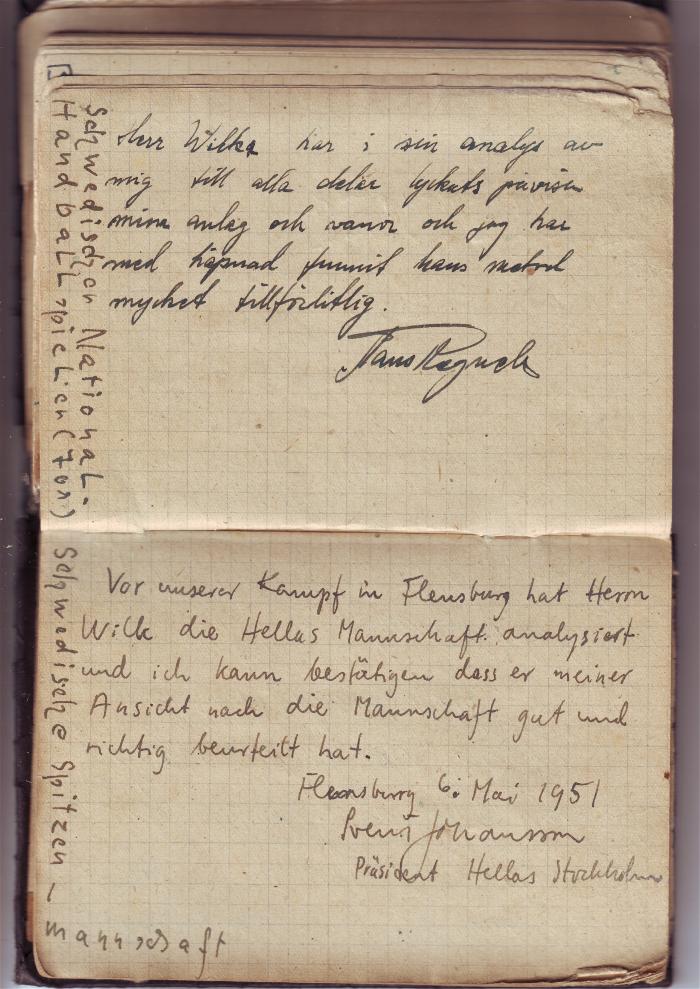 Herr Wilke har i sin analys av
mig till alla delar lyckats påvisa
mina anlag och vanor och jag har
med häpnad funnit hans metod
mycket tillförlitlig.
Hans
Schwedischen National-
Handballspielen (7on)
Vor unserer Kampf in Flensburg hat Herrn
Wilk die Hellas Mannschaft analysiert
und ich kann bestätigen dass er meiner
Ansicht nach die Mannschaft gut und
richtig beurteilt hat.
Flensburg 6: Mai 1951
Johansson
Präsident Hellas Stockholm
Schwedische Spitzen-
mannschaft